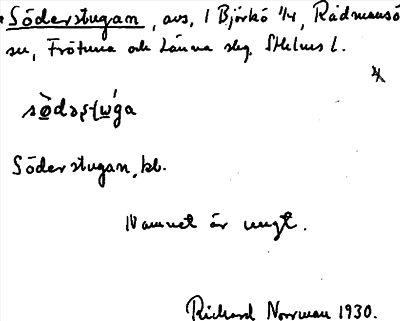 Söderstugan, avs, 1 Björkö 1/4, Rådmansö
sn, Frötuna och Länna skg. Sthlms l.
Söderstugan, kl.
Namnet är ungt.
Rickard Norrman 1930.